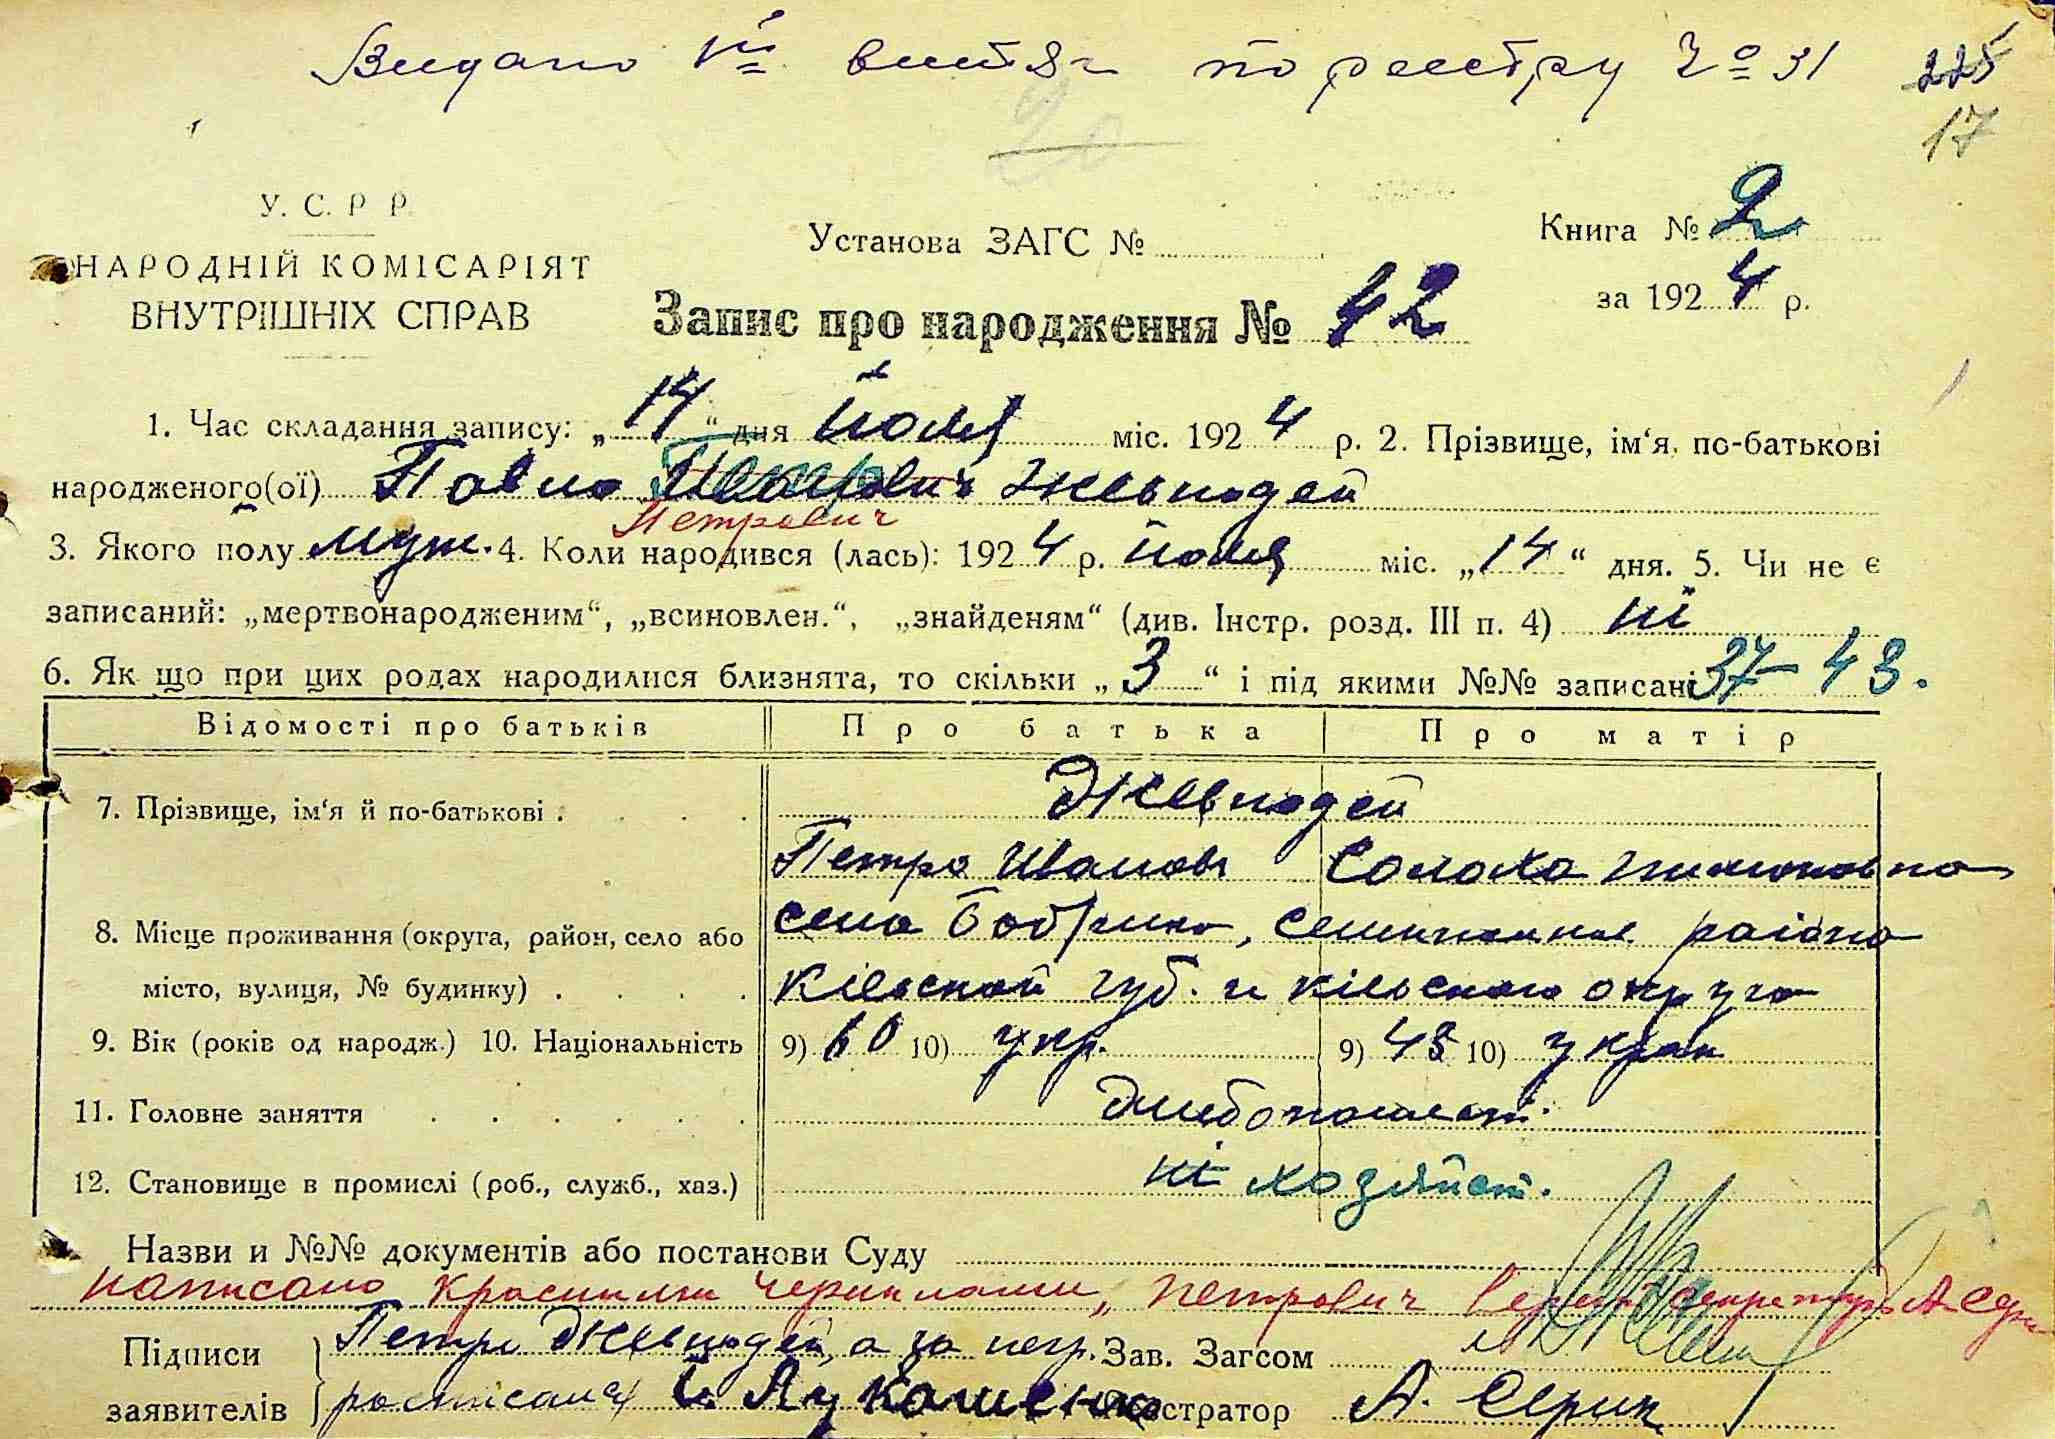 Видано І<u>й</u> витяг по реєстру № 31
225
17
20
У. С. Р. Р.
НАРОДНІЙ КОМІСАРІЯТ
ВНУТРІШНІХ СПРАВ
Установа ЗАГС №
Книга № 2
за 1924 р.
Запис про народження № 42
1. Час складання запису: „14“ дня йюля міс. 1924 р. 2. Прізвище, ім‘я, по-батькові
народженого(ої) Павло Петрович
Петрович
3. Якого полу муж. 4. Коли народився (лась): 1924 р. йюля міс. „14“ дня. 5. Чи не є
записаний: „мертвонародженим“, „всиновлен.“, „знайденям“ (див. Інстр. розд. III п. 4) ні
6. Як що при цих родах народилися близнята, то скільки „3“ і під якими №№ записані 37-43.
Відомості про батьків Про батька Про матір
7. Прізвище, ім‘я й по-батькові .
Петро Иванов Солоха
8. Місце проживання (округа, район, село або
села района
місто, вулиця, № будинку) .
Кіевской губ. и кіевского округа
9. Вік (років од народж.) 10. Національність 9) 60 10) укр. 9) 45 10) украи
11. Головне заняття
12. Становище в промислі (роб., служб., хаз.) ні хозяйст.
Назви и №№ документів або постанови Суду
написано красними чернилами „Петрович
Підписи заявителів
Петро а за негр.
росписался Лукашенко
Зав. Загсом
Реєстратор А.